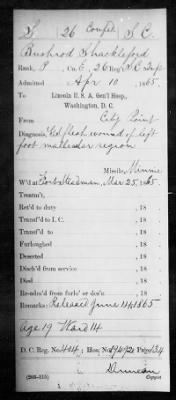 S 26 Confed. S.C.
Bushrod Shackleford
Rank, P, Co. E, 26 Reg't S.C. Inf
Admitted Apr 10, 1865,
To Lincoln U. S. A. Gen'l Hosp.,
Washington, D. C.
From City Point
Diagnosis, Gd flesh wound of left
foot malleolar region
Missile, Minnie
W'd at Fort Steadman, Mar 25, 1865
Treatm't,
Ret'd to duty , 18 .
Transf'd to I. C. , 18 .
Transf'd to , 18 .
Furloughed , 18 .
Deserted , 18 .
Disch'd from service , 18 .
Died , 18 .
Re-adm'd from furlo' or des'n , 18 .
Remarks: Released June 14, 1865
Age 19 Ward 14
D. C. Reg. No. 404; Hos. No. Page 134
Duncan
Copyist